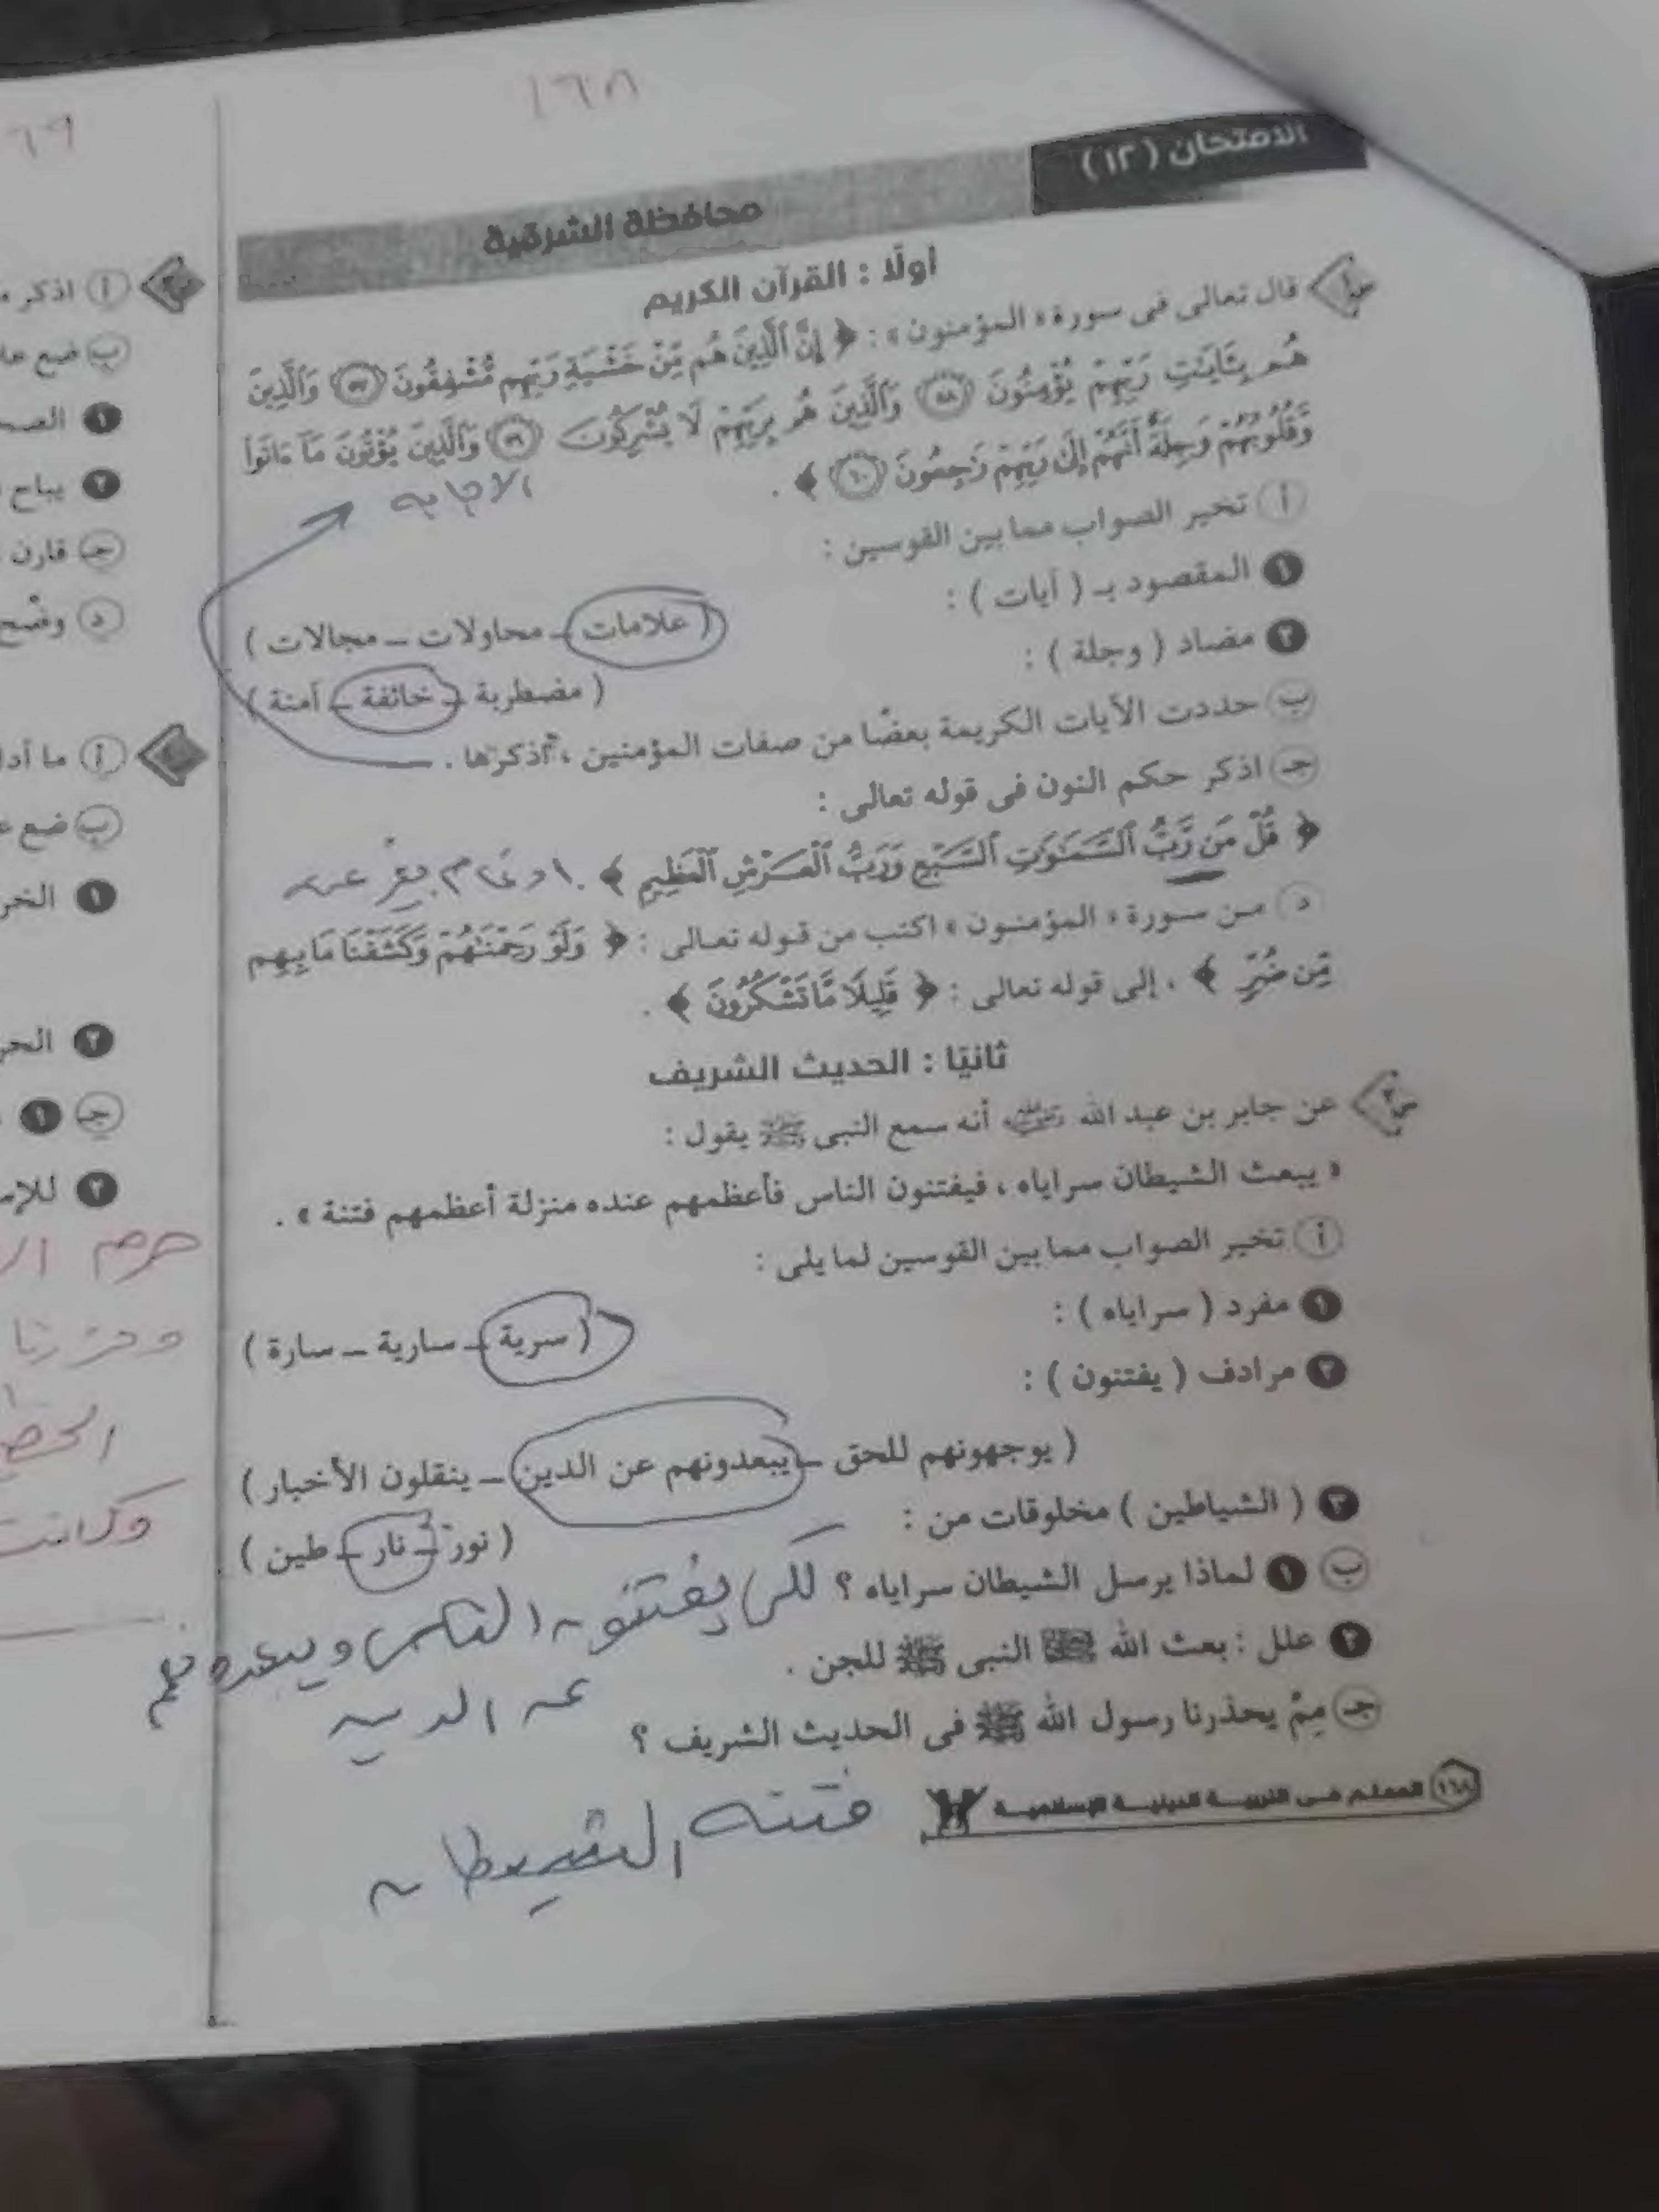 ١٦٨
الامتحان ( ١٢ )
محافظة الشرقية
أولًا : القرآن الكريم
س١ قال تعالى فى سورة « المؤمنون » : ﴿ إِنَّ الَّذِينَ هُم مِّنْ خَشْيَةِ رَبِّهِم مُّشْفِقُونَ (٥٧) وَالَّذِينَ
هُم بِـَٔايَـٰتِ رَبِّهِمْ يُؤْمِنُونَ (٥٨) وَالَّذِينَ هُم بِرَبِّهِمْ لَا يُشْرِكُونَ (٥٩) وَالَّذِينَ يُؤْتُونَ مَآ ءَاتَوا
وَّقُلُوبُهُمْ وَجِلَةٌ أَنَّهُمْ إِلَىٰ رَبِّهِمْ رَٰجِعُونَ (٦٠) ﴾ .
الاجابه
أ تخير الصواب مما بين القوسين :
١ المقصود بـ ( آيات ) :
( علامات ــ محاولات ــ مجالات )
٢ مضاد ( وجلة ) :
( مضطربة ــ خائفة ــ آمنة )
ب حددت الآيات الكريمة بعضًا من صفات المؤمنين ، اذكرها .
جـ اذكر حكم النون فى قوله تعالى :
﴿ قُلْ مَن رَّبُّ ٱلسَّمَـٰوَٰتِ ٱلسَّبْعِ وَرَبُّ ٱلْعَرْشِ ٱلْعَظِيمِ ﴾ . ادغام بغر عنه
د من سورة « المؤمنون » اكتب من قوله تعالى : ﴿ وَلَوْ رَحِمْنَـٰهُمْ وَكَشَفْنَا مَا بِهِم
مِّن ضُرٍّ ﴾ ، إلى قوله تعالى : ﴿ قَلِيلًا مَّا تَشْكُرُونَ ﴾ .
ثانيًا : الحديث الشريف
س٢ عن جابر بن عبد الله رضي الله عنه أنه سمع النبى ﷺ يقول :
« يبعث الشيطان سراياه ، فيفتنون الناس فأعظمهم عنده منزلة أعظمهم فتنة » .
أ تخير الصواب مما بين القوسين لما يلى :
١ مفرد ( سراياه ) :
( سرية ــ سارية ــ سارة )
٢ مرادف ( يفتنون ) :
( يوجهونهم للحق ــ يبعدونهم عن الدين ــ ينقلون الأخبار )
٣ ( الشياطين ) مخلوقات من :
( نور ــ نار ــ طين )
ب ١ لماذا يرسل الشيطان سراياه ؟ لكى يفتنون الناس ويبعدوهم
عن الدين
٢ علل : بعث الله النبى ﷺ للجن .
جـ مِمَّ يحذرنا رسول الله ﷺ فى الحديث الشريف ؟
فتنه الشيطان
١٦٨ المعلم فى التربية الدينية الإسلامية
٦٩
أ اذكر
ب ضع
١
٢ يباح
جـ قارن
د وضح
أ ما
ب ضع
١
٢
جـ ١
٢
حرم
وكانت